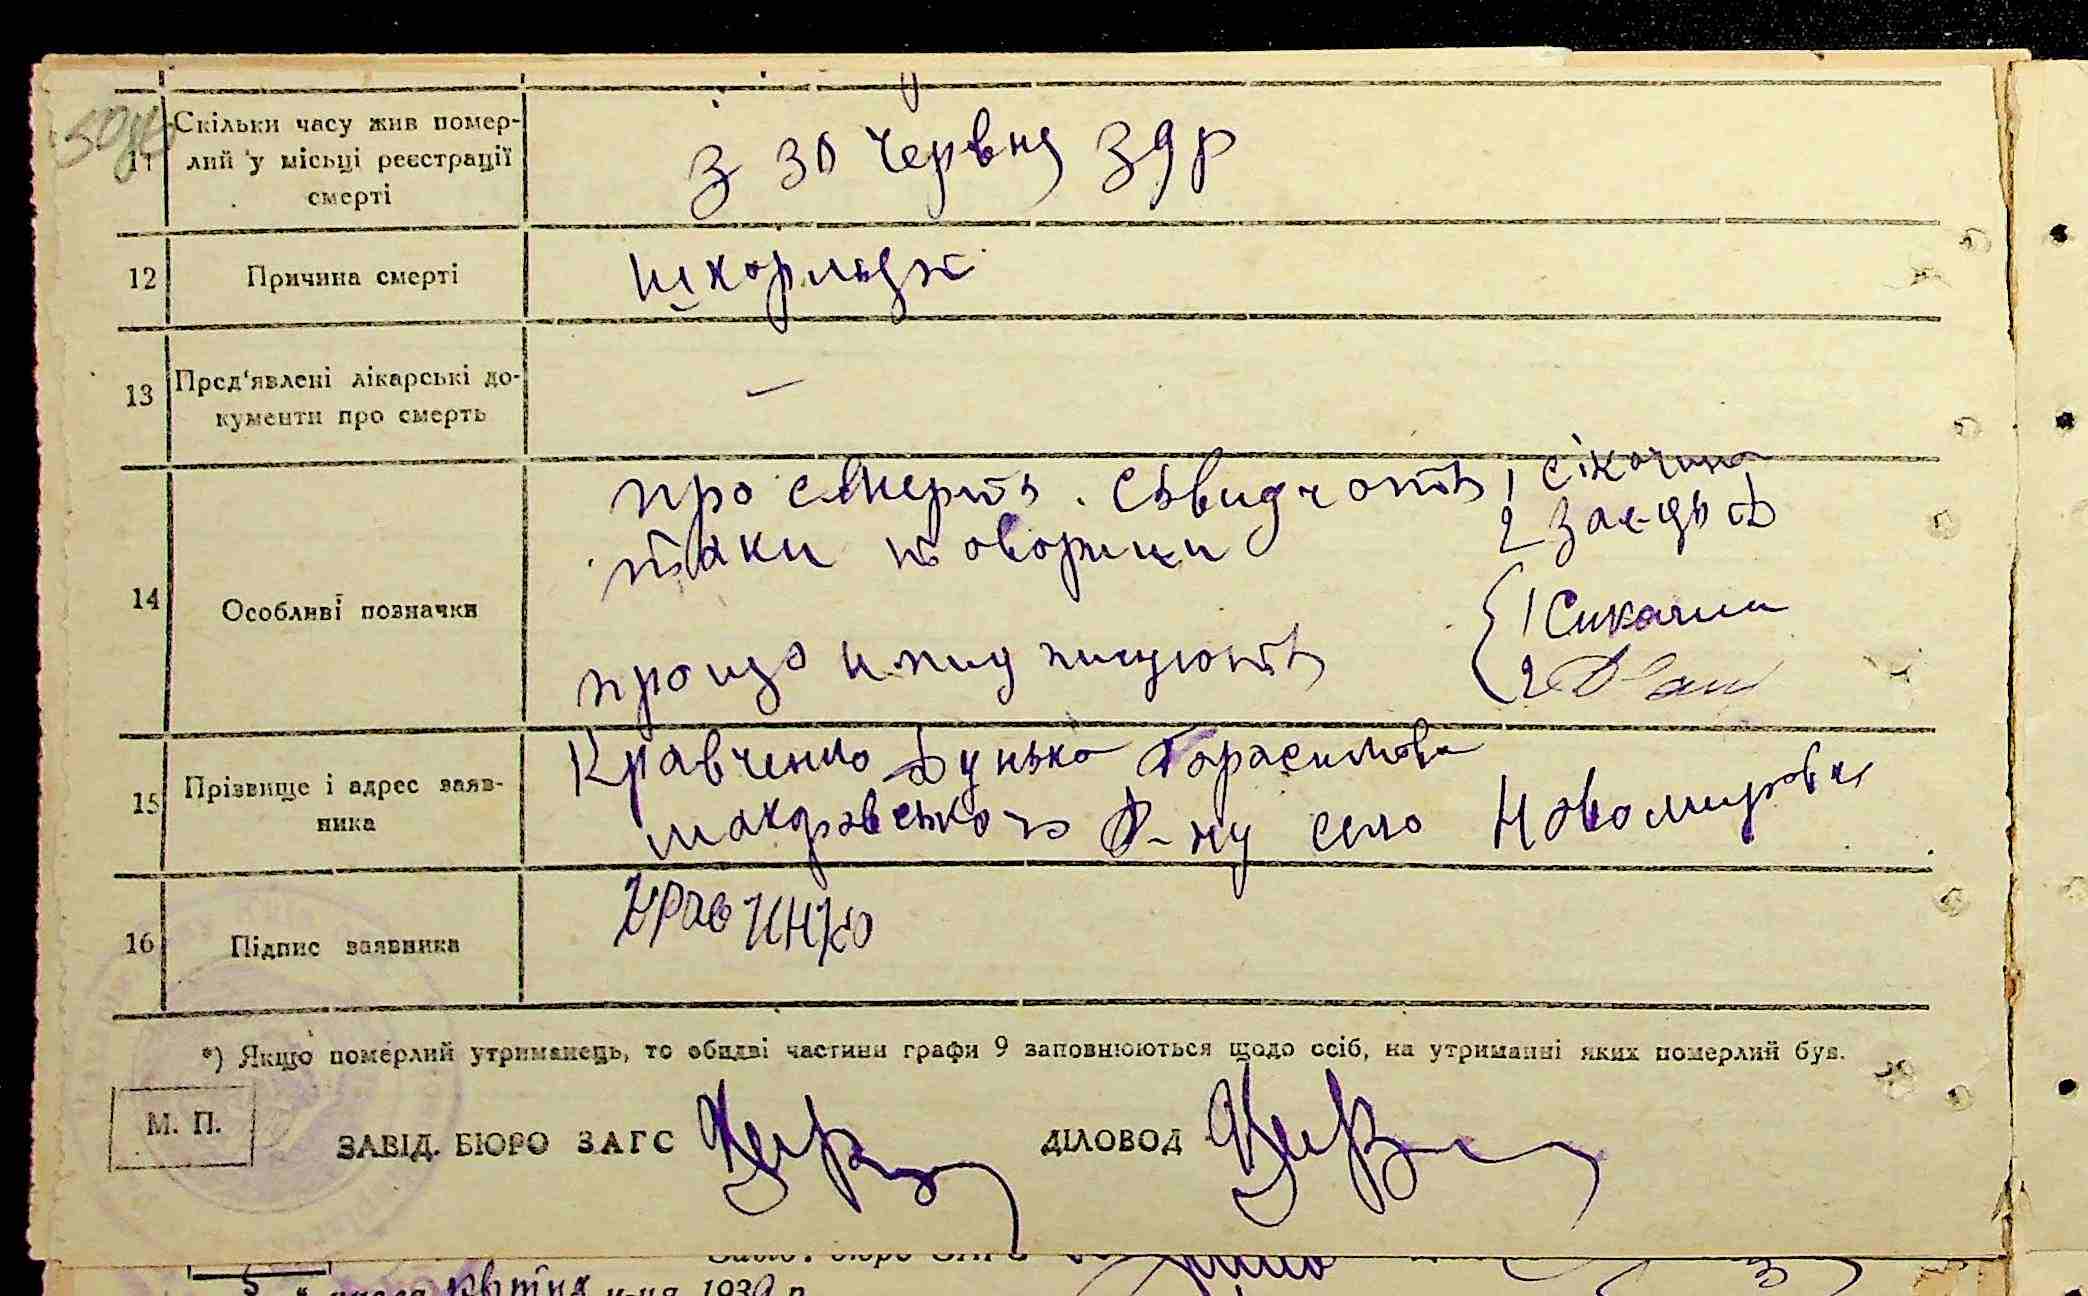 11
Скільки часу жив помер-
лий у місьці реєстрації
смерті
з 30 червня 39 р
12
Причина смерті
13
Пред'явлені лікарські до-
кументи про смерть
—
14
Особливі позначки
про смерть свидчать 1 Сікачина
таки товорищи 2 Заєць Ф
про що й пидписують { 1 Сикачин
2
15
Прізвище і адрес заяв-
ника
Кравченко Дунька Гарасимовна
р-ну село Новомировки
16
Підпис заявника
КРАВЧИНКО
*) Якщо померлий утриманець, то обидві частини графи 9 заповнюються щодо осіб, на утриманні яких померлий був.
М. П.
ЗАВІД. БЮРО ЗАГС
ДІЛОВОД
5 квітня 1939 р.